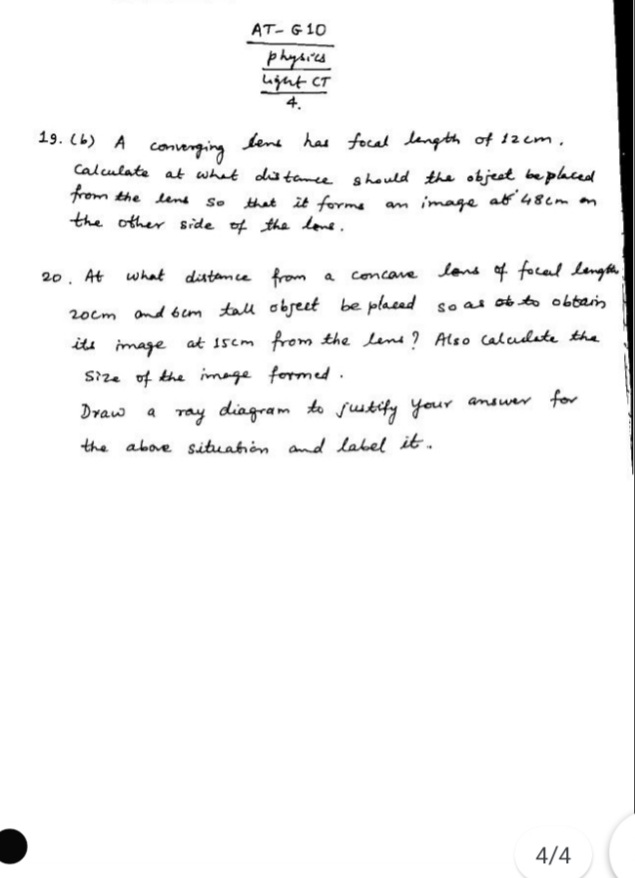 AT- G10
physics
Light CT
4.
19. (b) A converging lens has focal length of 12cm.
Calculate at what distance should the object be placed
from the lens so that it forms an image at 48cm on
the other side of the lens.
20. At what distance from a concave lens of focal length
20cm and 6cm tall object be placed so as to obtain
its image at 15cm from the lens? Also calculate the
size of the image formed.
Draw a ray diagram to justify your answer for
the above situation and label it.
4/4